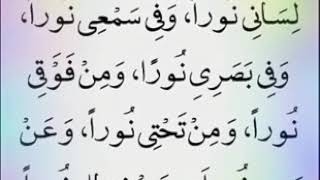 لِسَانِي نُوراً، وَفِي سَمْعِي نُوراً،
وَفِي بَصَرِي نُورًا، وَمِنْ فَوْقِي
نُوراً، وَمِنْ تَحْتِي نُوراً، وَعَنْ